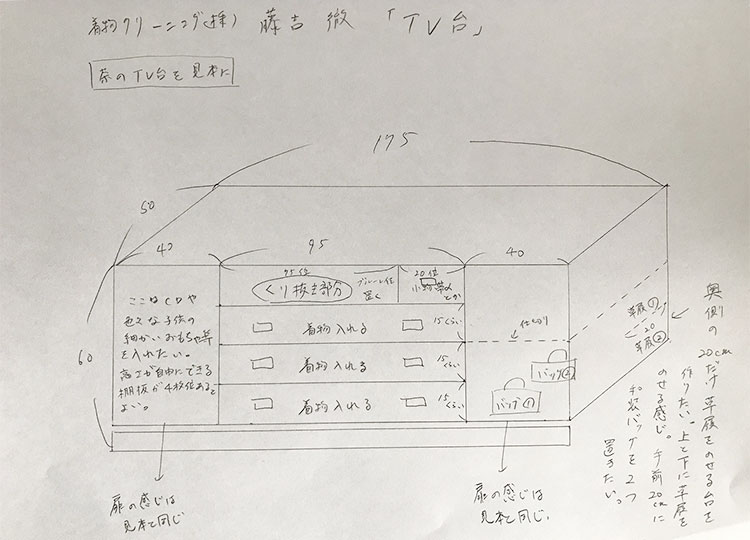 着物クリーニング(株) 藤吉 徹 「TV台」
奈のTV台を見本に
175
50
40
95
40
60
75位
くり抜き部分
ブルーレイ任
置く
20位
小物帯〆
とか
着物入れる
15くらい
着物入れる
15くらい
着物入れる
15くらい
ここはCDや
色々な子供の
細かいおもちゃ等
を入れたい。
高さが自由にできる
棚板が4枚位あると
よい。
仕切り
バッグ②
バッグ①
草履①
20
草履②
奥側の20cmだけ草履をのせる台を
作りたい。上と下に草履を
のせる感じ。手前20cmに
和装バッグを2つ
置きたい。
扉の感じは
見本と同じ
扉の感じは
見本と同じ.